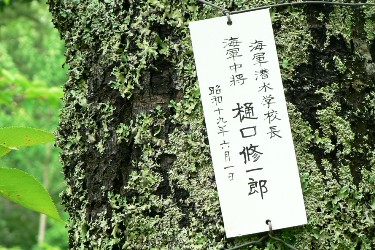 海軍潜水学校長
海軍中将 樋口修一郎
昭和十九年六月一日